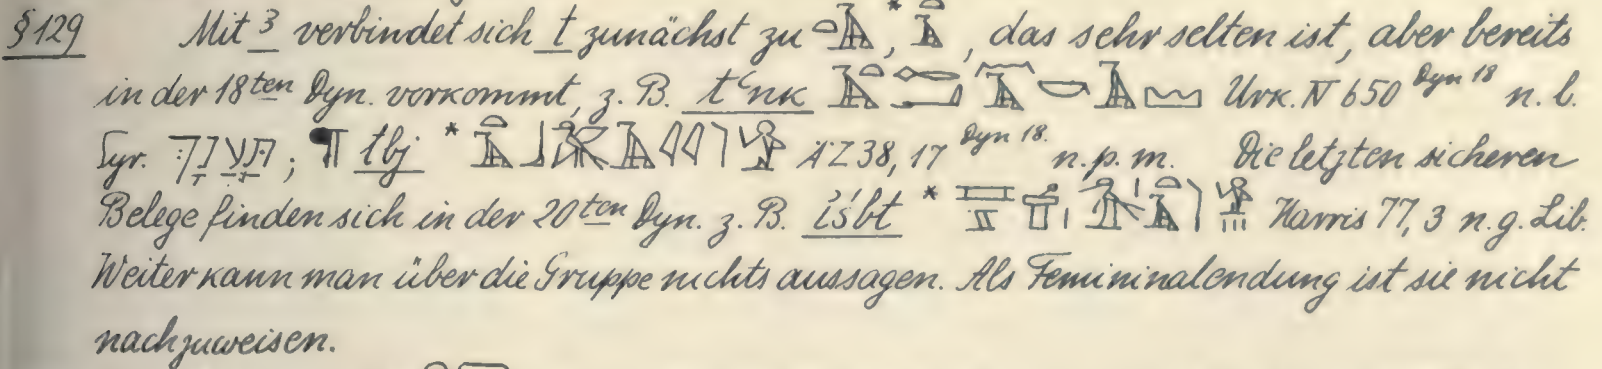 § 129 Mit ꜣ verbindet sich t zunächst zu 𓏏𓅮, * , das sehr selten ist, aber bereits
in der 18ten Dyn. vorkommt, z. B. tꜥnk Urk. IV 650 Dyn 18 n. l.
Syr. ; ¶ tbj * ÄZ 38, 17 Dyn 18. n. p. m. Die letzten sicheren
Belege finden sich in der 20ten Dyn. z. B. * Harris 77, 3 n. g. Lib.
Weiter kann man über die Gruppe nichts aussagen. Als Femininalendung ist sie nicht
nachzuweisen.